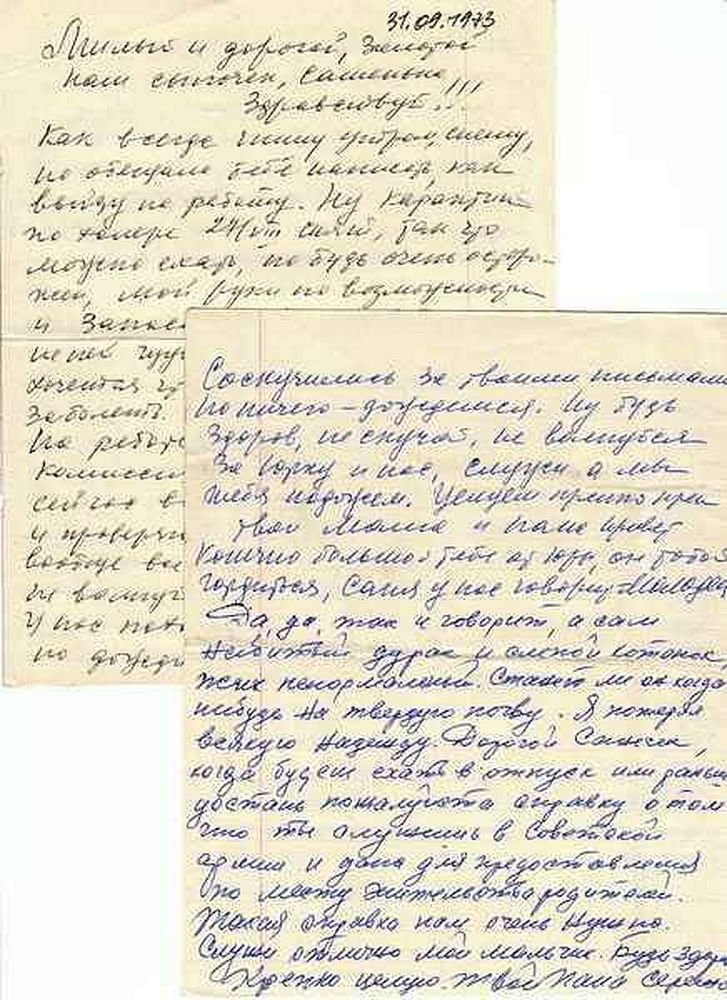 31.09.1973
Милый и дорогой, золотой
наш сыночек, Сашенька!!!
Здравствуй!..
Как всегда пишу утром, спешу,
но обещала тебе написать, как
выйду на работу. Ну карантин
по холере сняй, так что
можно ехать, но будь очень осторо-
жен, мой руки по возможности
и
не пей
хочется
заболеть.
На работе
комиссия
сейчас в
и проверя
вообще вс
не волнуй
У нас пока
но дожди
Соскучились за твоими письмами
Но ничего - дождемся. Ну будь
здоров, не скучай, не волнуйся
за Юрку и нас, служи а мы
тебя подождем. Целуем крепко
твои Мама и папа привет
Конечно большой тебе от Юры, он тобой
гордиться, Саня у нас говорит Молодец
Да, да, так и говорит, а сам
набитый дурак и слепой котенок
и ненормальный. Станет ли он когда
нибудь на твердую почву. Я потерял
всякую надежду. Дорогой Сашек,
когда будеш ехать в отпуск или раньше
достань пожалуйста справку о том
что ты служишь в Советской
армии и дана для предоставления
по месту жительства родителей.
Такая справка нам очень нужна.
Служи отлично мой мальчик. Будь здоров
Крепко целую. твой папа